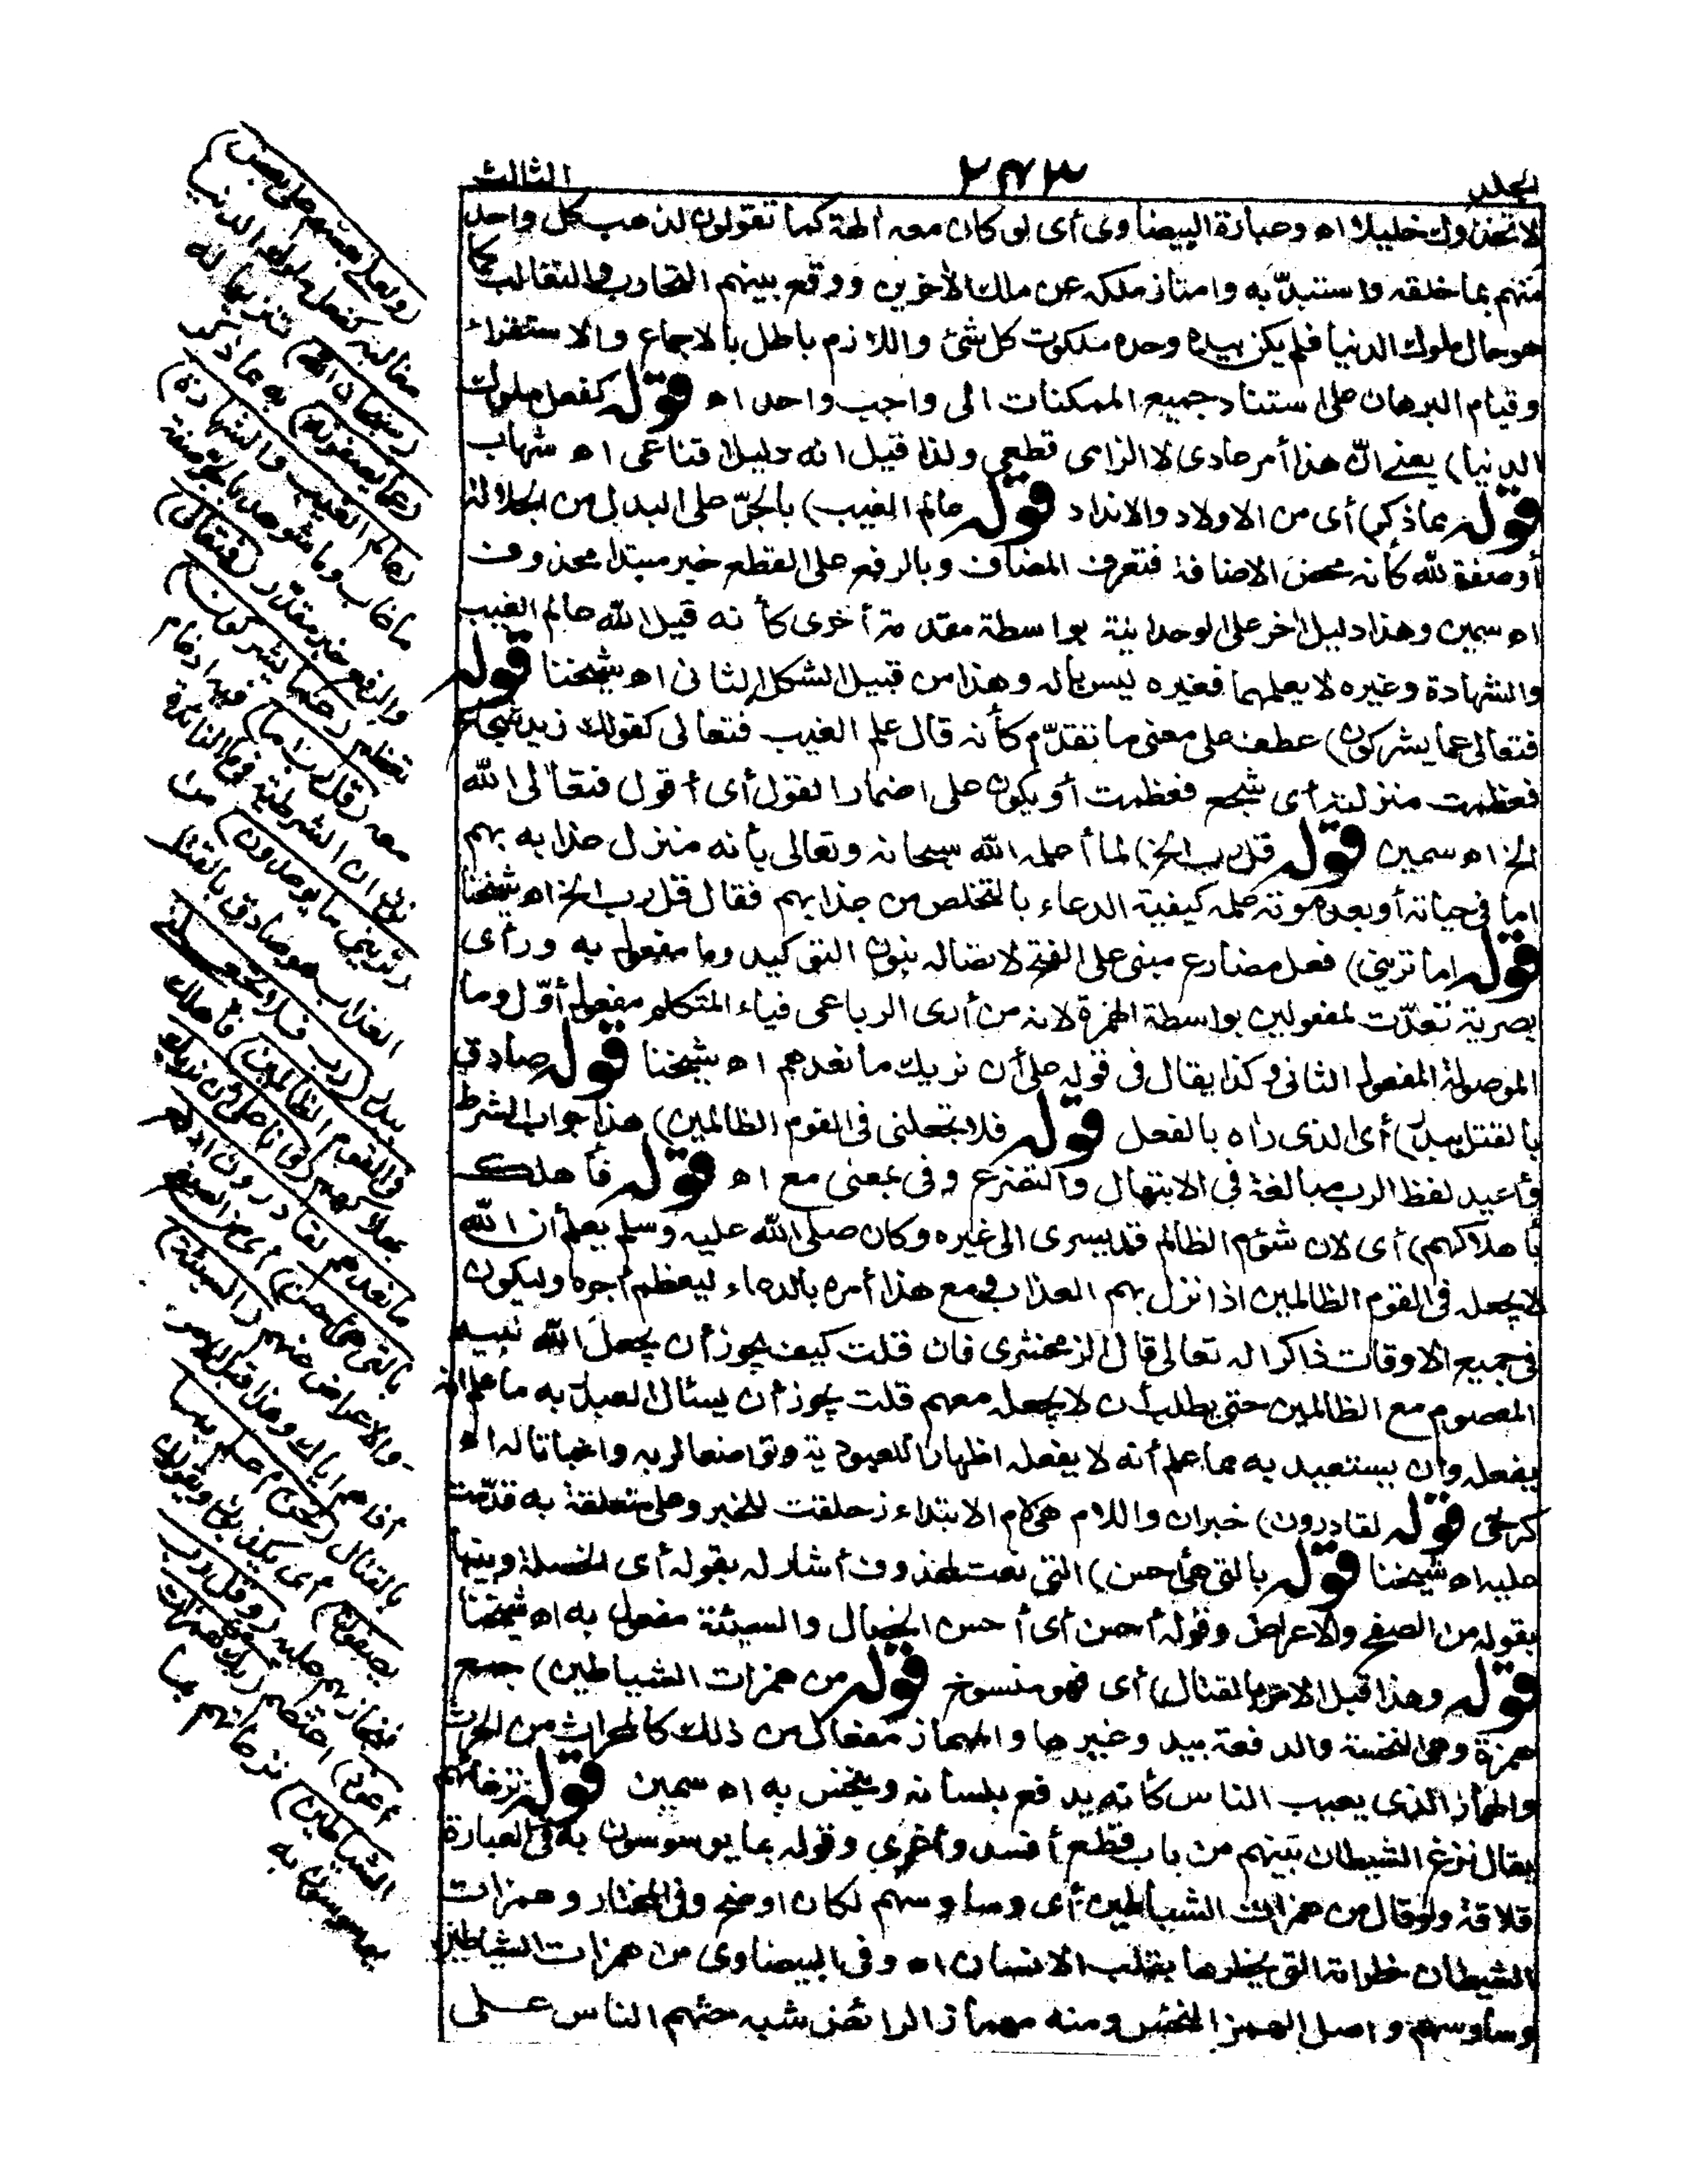 الجلد ٢٤٣ الثالث
لاتخذوك خليلا اه وعبارة البيضاوى أى لو كان معه آلهة كما تقولون لذهب كل واحد
منهم بما خلقه واستبدّ به وامتاز ملكه عن ملك الآخرين ووقع بينهم التحارب والتغالب كما
هو حال ملوك الدنيا فلم يكن بيده وحده ملكوت كل شئ واللازم باطل بالاجماع والاستقراء
وقيام البرهان على استناد جميع الممكنات الى واجب واحد اه قوله كفعل ملوك
الدنيا) يعنى انّ هذا أمر عادى لا الزامى قطعى ولذا قيل انه دليل اقناعى اه شهاب
قوله بما ذكر) أى من الاولاد والانداد قوله عالم الغيب) بالجرّ على البدل من الجلالة
أو صفة لله كأنه محض الاضافة فتعرف المضاف وبالرفع على القطع خبر مبتدا محذوف
اه سمين وهذا دليل آخر على الوحدانية بواسطة مقدمة أخرى كأنه قيل الله عالم الغيب
والشهادة وغيره لا يعلمهما فغيره ليس باله وهذا من قبيل الشكل الثانى اه شيخنا قوله
فتعالى عما يشركون) عطف على معنى ما تقدّم كأنه قال علم الغيب فتعالى كقولك زيد شجاع
فعظمت منزلته أى شجع فعظمت أو يكون على اضمار القول أى أقول فتعالى الله
الخ اه سمين قوله قل رب الخ) لما أعلمه الله سبحانه وتعالى بأنه منزل عذابه بهم
اما فى حياته أو بعد موته علمه كيفية الدعاء بالتخلص من عذابهم فقال قل رب الخ اه شيخنا
قوله اما ترينى) فعل مضارع مبنى على الفتح لاتصاله بنون التوكيد وما مفعول به ورأى
بصرية تعدّت لمفعولين بواسطة الهمزة لانه من أرى الرباعى فياء المتكلم مفعول أوّل وما
الموصولة المفعول الثانى وكذا يقال فى قوله على أن نريك ما نعدهم اه شيخنا قوله صادق
بالقتل ببدر) أى الذى رآه بالفعل قوله فلا تجعلنى فى القوم الظالمين) هذا جواب الشرط
وأعيد لفظ الرب مبالغة فى الابتهال والتضرع وفى بمعنى مع اه قوله فأهلك
بأهلاكهم) أى لان شؤم الظالم قد يسرى الى غيره وكان صلى الله عليه وسلم يعلم أن الله
لا يجعله فى القوم الظالمين اذا نزل بهم العذاب ومع هذا أمره بالدعاء ليعظم أجره وليكون
فى جميع الاوقات ذاكرا له تعالى قال الزمخشرى فان قلت كيف يجوز أن يجعل الله نبيه
المعصوم مع الظالمين حتى يطلب أن لا يجعله معهم قلت يجوز أن يسأل العبد به ما علم انه
يفعله وأن يستعيد به مما علم أنه لا يفعله اظهارا للعبودية وتواضعا لربه واخباتا له اه
كرخى قوله لقادرون) خبر ان واللام هى لام الابتداء زحلقت للخبر وعلى متعلقة به قدّمت
عليه اه شيخنا قوله بالتى هى أحسن) التى نعت لمحذوف أشار له بقوله أى الخصلة وبينها
بقوله من الصفح والاعراض وقوله أحسن أى أحسن الخصال والسيئة مفعول به اه شيخنا
قوله وهذا قبل الامر بالقتال) أى فهو منسوخ قوله من همزات الشياطين) جمع
همزة وهى النخسة والدفعة بيد وغيرها والمهماز مفعال من ذلك كالمحراث من الحرث
والهماز الذى يعيب الناس كأنه يدفع بلسانه وينخس به اه سمين قوله نزغاتهم
يقال نزغ الشيطان بينهم من باب قطع أفسد وأغرى وقوله بما يوسوسون به فى العبارة
قلاقة ولو قال من همزات الشياطين أى وساوسهم لكان اوضح وفى المختار وهمزات
الشيطان خطراته التى يخطرها بقلب الانسان اه وفى البيضاوى من همزات الشياطين
وساوسهم واصل الهمز النخس ومنه مهماز الرائض شبه حثهم الناس على
(ولعلا بعضهم على بعض)
مغالبة كفعل ملوك الدنيا
(سبحان الله) تنزيها له
(عما يصفونه) به مما ذكر
(عالم الغيب والشهادة)
ما غاب وما شوهد بالجر صفة
والرفع خبر هو مقدّر (فتعالى)
تعظم (عما يشركون)
معه (قل رب اما) فيه ادغام
نون ان الشرطية فى ما الزائدة
(ترينى ما يوعدون) من
العذاب هو صادق بالقتل
ببدر (رب فلا تجعلنى
فى القوم الظالمين) فأهلك
بهلاكهم (وانا على ان نريك
ما نعدهم لقادرون ادفع
بالتى هى أحسن) أى من الصفح
والاعراض عنهم (السيئة)
أذاهم اياك وهذا قبل الامر
بالقتال (نحن أعلم بما
يصفون) أى يكذبون ويقولون
فنجازيهم عليه (وقل رب
أعوذ) اعتصم (بك من همزات
الشياطين) نزغاتهم بما
يوسوسون به